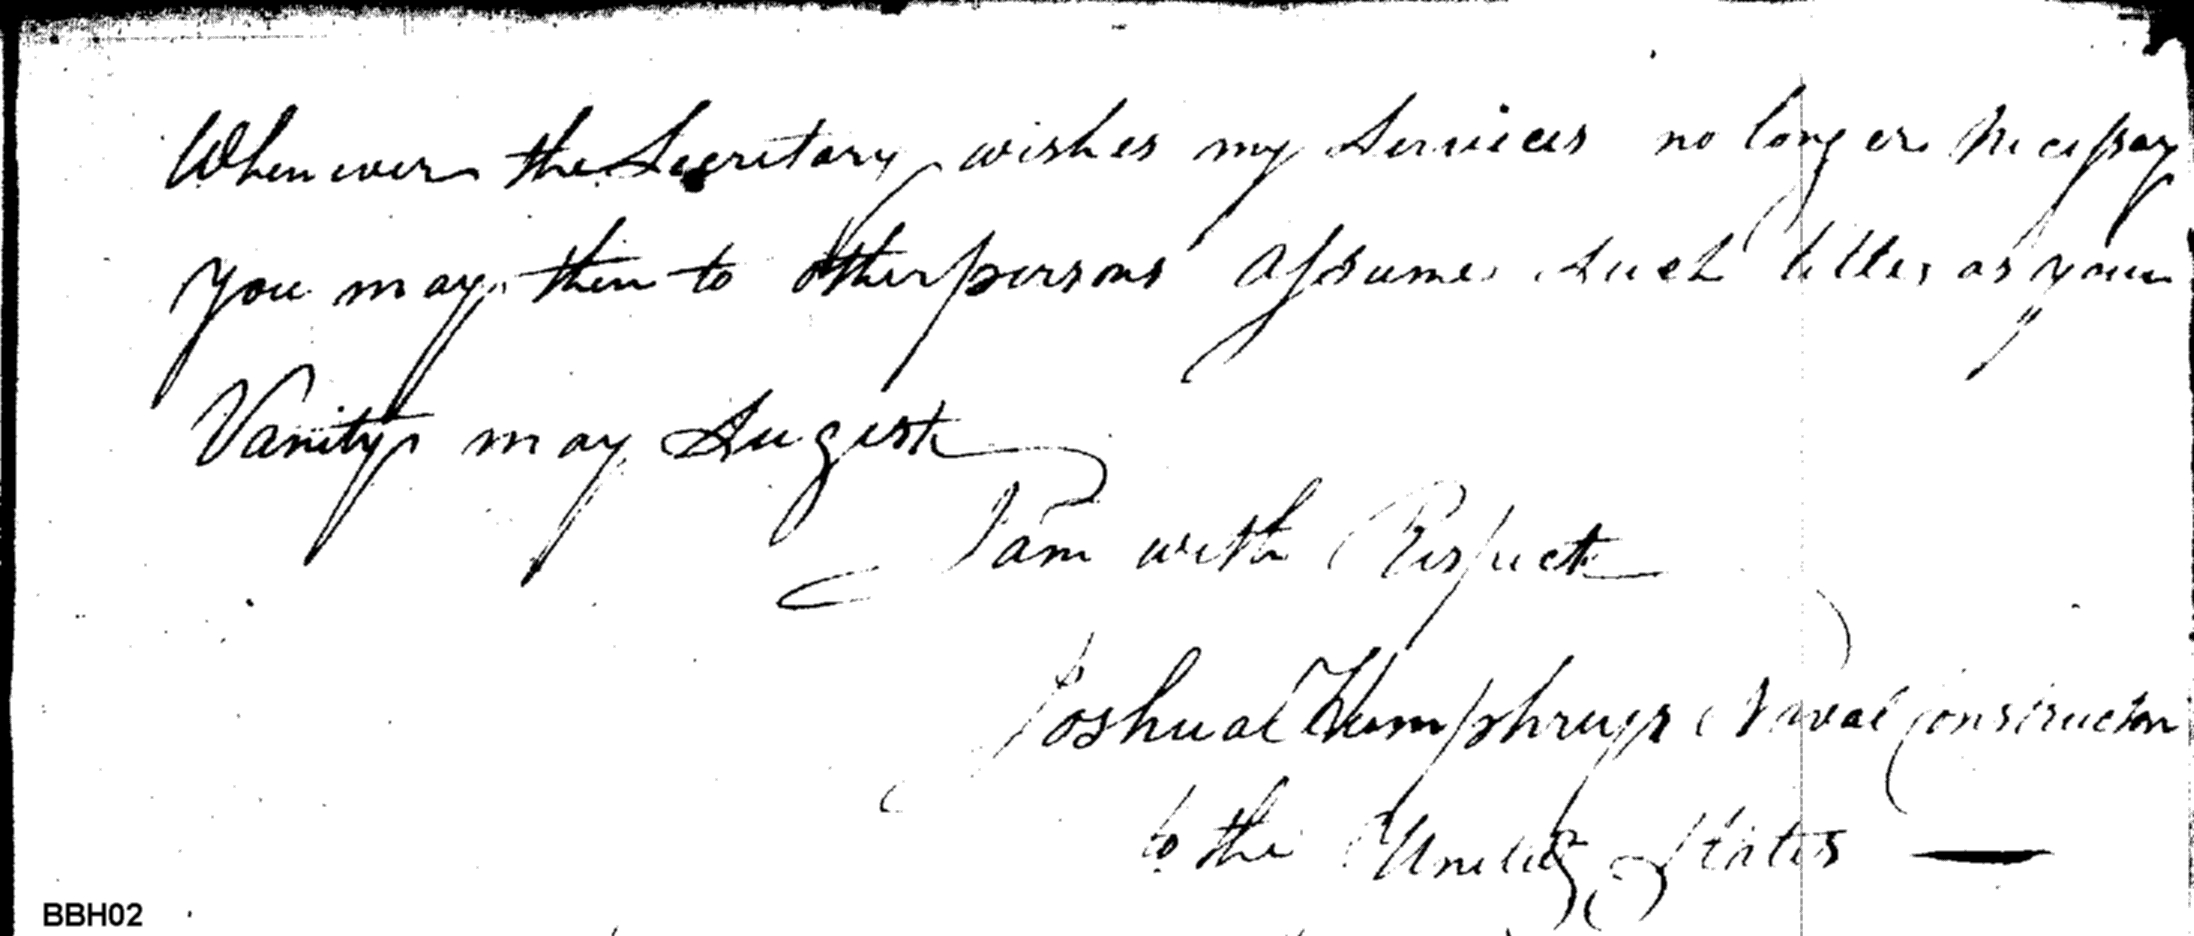 Whenever the Secretary wishes my Services no longer Necessary
you may then to other persons assume such titles as your
Vanity may Sugest
I am with Respect
Joshua Humphreys Naval Constructor
to the United States —
BBH02